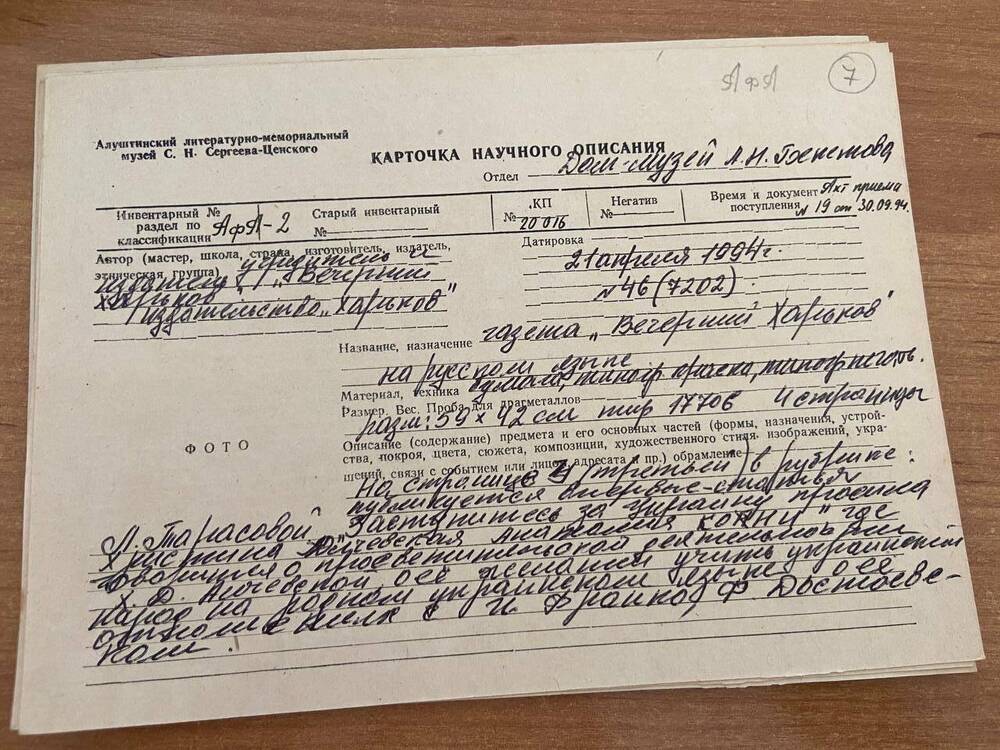 АфА
7
Алуштинский литературно-мемориальный
музей С. Н. Сергеева-Ценского
КАРТОЧКА НАУЧНОГО ОПИСАНИЯ
Отдел Дом-музей А.Н. Бекетова
Инвентарный №
раздел по
классификации АфА-2
Старый инвентарный
№
КП
№ 20016
Негатив
№
Время и документ Акт приема
поступления N 19 от 30.09.94.
Автор (мастер, школа, страна, изготовитель, издатель,
этническая группа) учредитель и
издатель "Вечерний
Харьков"
издательство "Харьков"
Датировка
21 апреля 1994 г.
N 46 (7202)
Название, назначение газета "Вечерний Харьков"
на русском языке
Материал, техника бумага, типогр краска, типогр печать.
Размер. Вес. Проба для драгметаллов
разм: 59 х 42 см тир 17706 4 страницы
ФОТО
Описание (содержание) предмета и его основных частей (формы, назначения, устрой-
ства, покроя, цвета, сюжета, композиции, художественного стиля, изображений, укра-
шений, связи с событием или лицом, адресата и пр.) обрамление
На странице (третьей) в рубрике:
публикуется впервые - статья
Л. Тарасовой "Заступитесь за Украину просила
Христина Алчевская
говорится о просветительской деятельности
Х. Д. Алчевской о её желании учить украинский
народ на родном украинском языке о её
отношениях с И Франко, Ф Достоевс-
ком.